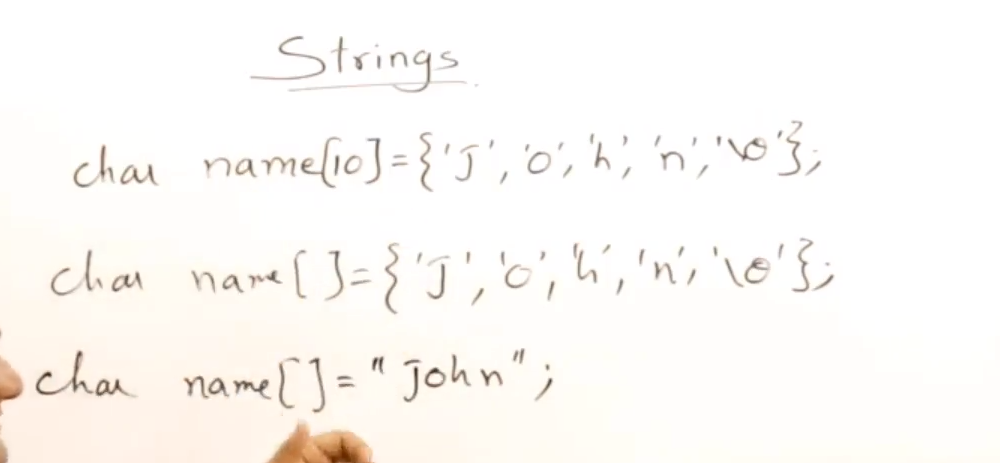 Strings
char name[10]={'J','o','h','n','\0'};
char name[ ]={'J','o','h','n','\0'};
char name[ ]="John";